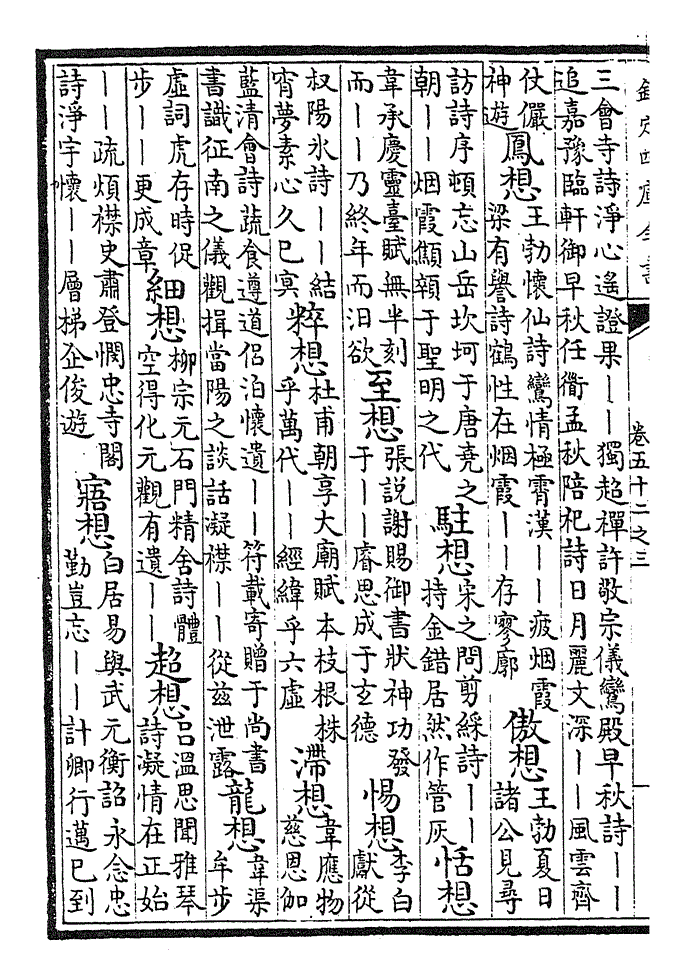 欽定四庫全書
卷五十二之三
三會寺詩淨心遙證果——獨超禪許敬宗儀鸞殿早秋詩——
追嘉豫臨軒御早秋任衢孟秋陪祀詩日月麗文深——風雲齊
仗儼神遊鳳想王勃懷仙詩鸞情極霄漢——疲烟霞梁有譽詩鶴性在烟霞——存寥廓傲想王勃夏日諸公見尋
訪詩序頓忘山岳坎坷于唐堯之朝——烟霞顦顇于聖明之代駐想宋之問剪綵詩——持金錯居然作管灰恬想
韋承慶靈臺賦無半刻而——乃終年而汨欲至想張說謝賜御書狀神功發于——睿思成于玄德惕想李白獻從
叔陽氷詩——結宵夢素心久已冥粹想杜甫朝享大廟賦本枝根株乎萬代——經緯乎六虛滯想韋應物慈恩伽
藍清會詩蔬食遵道侶泊懷遺——符載寄贈于尚書書識征南之儀觀揖當陽之談話凝襟——從兹泄露龍想韋渠牟步
虛詞虎存時促步——更成章細想柳宗元石門精舍詩體空得化元觀有遺——超想呂溫思聞雅琴詩凝情在正始
——疏煩襟史肅登憫忠寺閣詩淨宇懷——層梯企俊遊寤想白居易與武元衡詔永念忠勤豈忘——計卿行邁已到